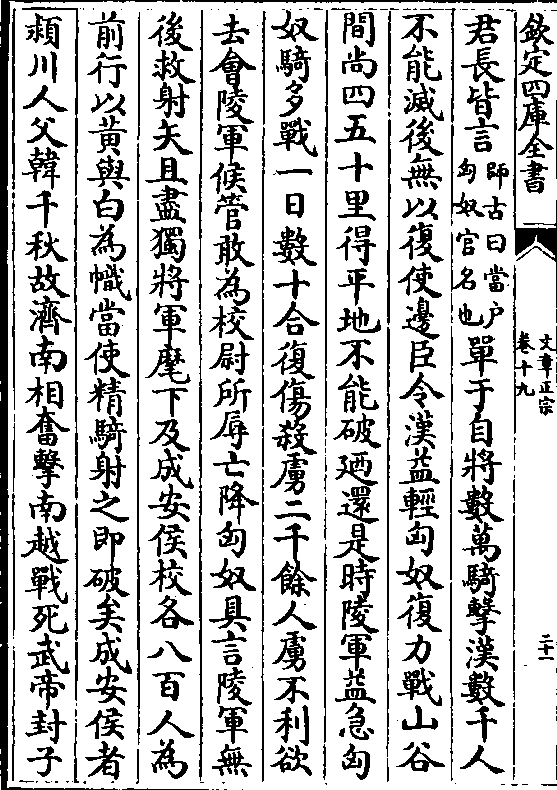 欽定四庫全書
文章正宗
卷十九
二十一
君長皆言師古曰當户匈奴官名也單于自將數萬騎擊漢數千人
不能滅後無以復使邊臣令漢益輕匈奴復力戰山谷
間尚四五十里得平地不能破廼還是時陵軍益急匈
奴騎多戰一日數十合復傷殺虜二千餘人虜不利欲
去會陵軍候管敢為校尉所辱亡降匈奴具言陵軍無
後救射矢且盡獨將軍麾下及成安侯校各八百人為
前行以黄與白為幟當使精騎射之即破矣成安侯者
潁川人父韓千秋故濟南相奮擊南越戰死武帝封子